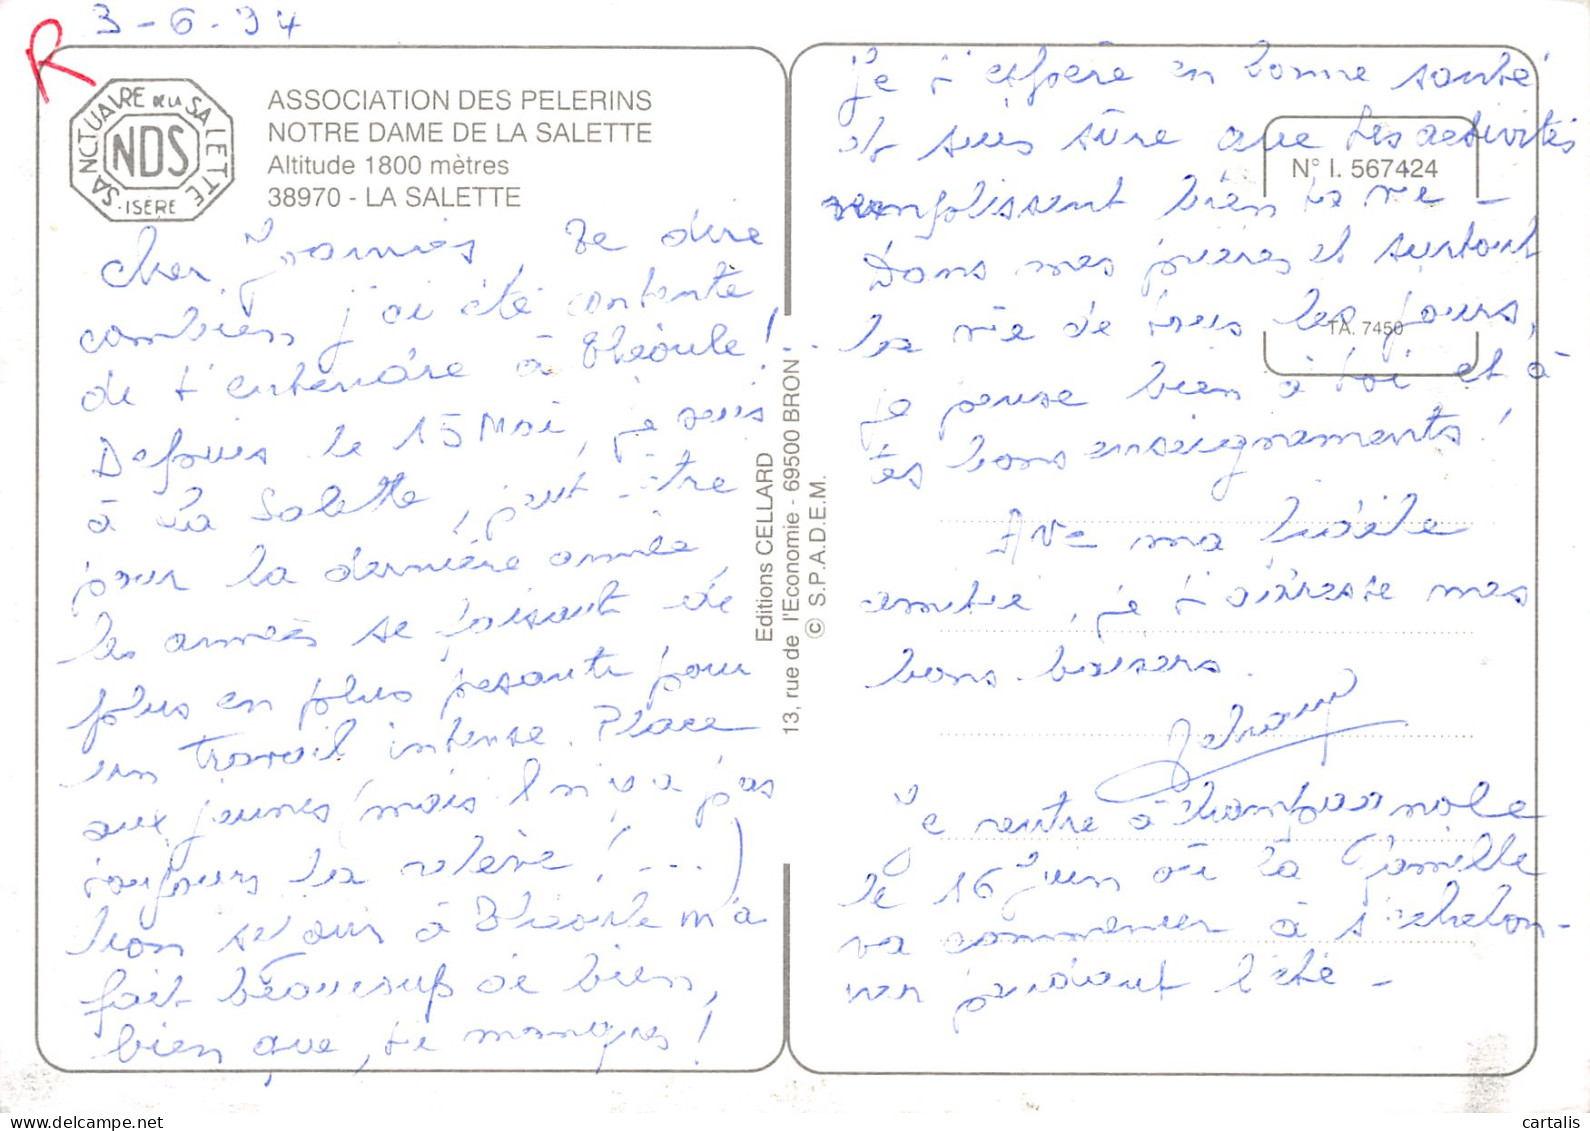 3-6-94
R
SANCTUAIRE DE LA SALETTE
NDS
ISÈRE
ASSOCIATION DES PELERINS
NOTRE DAME DE LA SALETTE
Altitude 1800 mètres
38970 - LA SALETTE
Cher Joannès, Te dire
combien j'ai été contente
de t'entendre à Théoule! ..
Depuis le 15 Mai, je suis
à La Salette, peut-être
pour la dernière année,
les années se faisant de
plus en plus pesante pour
un travail intense. Place
aux jeunes (mais l n'y a pas
toujours la relève! ...)
Mon séjour à Théoule m'a
fait beaucoup de bien,
bien que, tu manques!
Editions CELLARD
13, rue de l'Economie - 69500 BRON
© S.P.A.D.E.M.
N° I. 567424
TA. 7450
Je t'espère en bonne santé
et suis sûre que tes activités
remplissent bien ta vie -
Dans mes prières et surtout
la vie de tous les jours,
je pense bien à toi et à
tes bons enseignements!
Avec ma fidèle
amitié, je t'adresse mes
bons baisers.
Je rentre à
le 16 juin où la famille
va commencer à s'échelon-
ner pendant l'été -